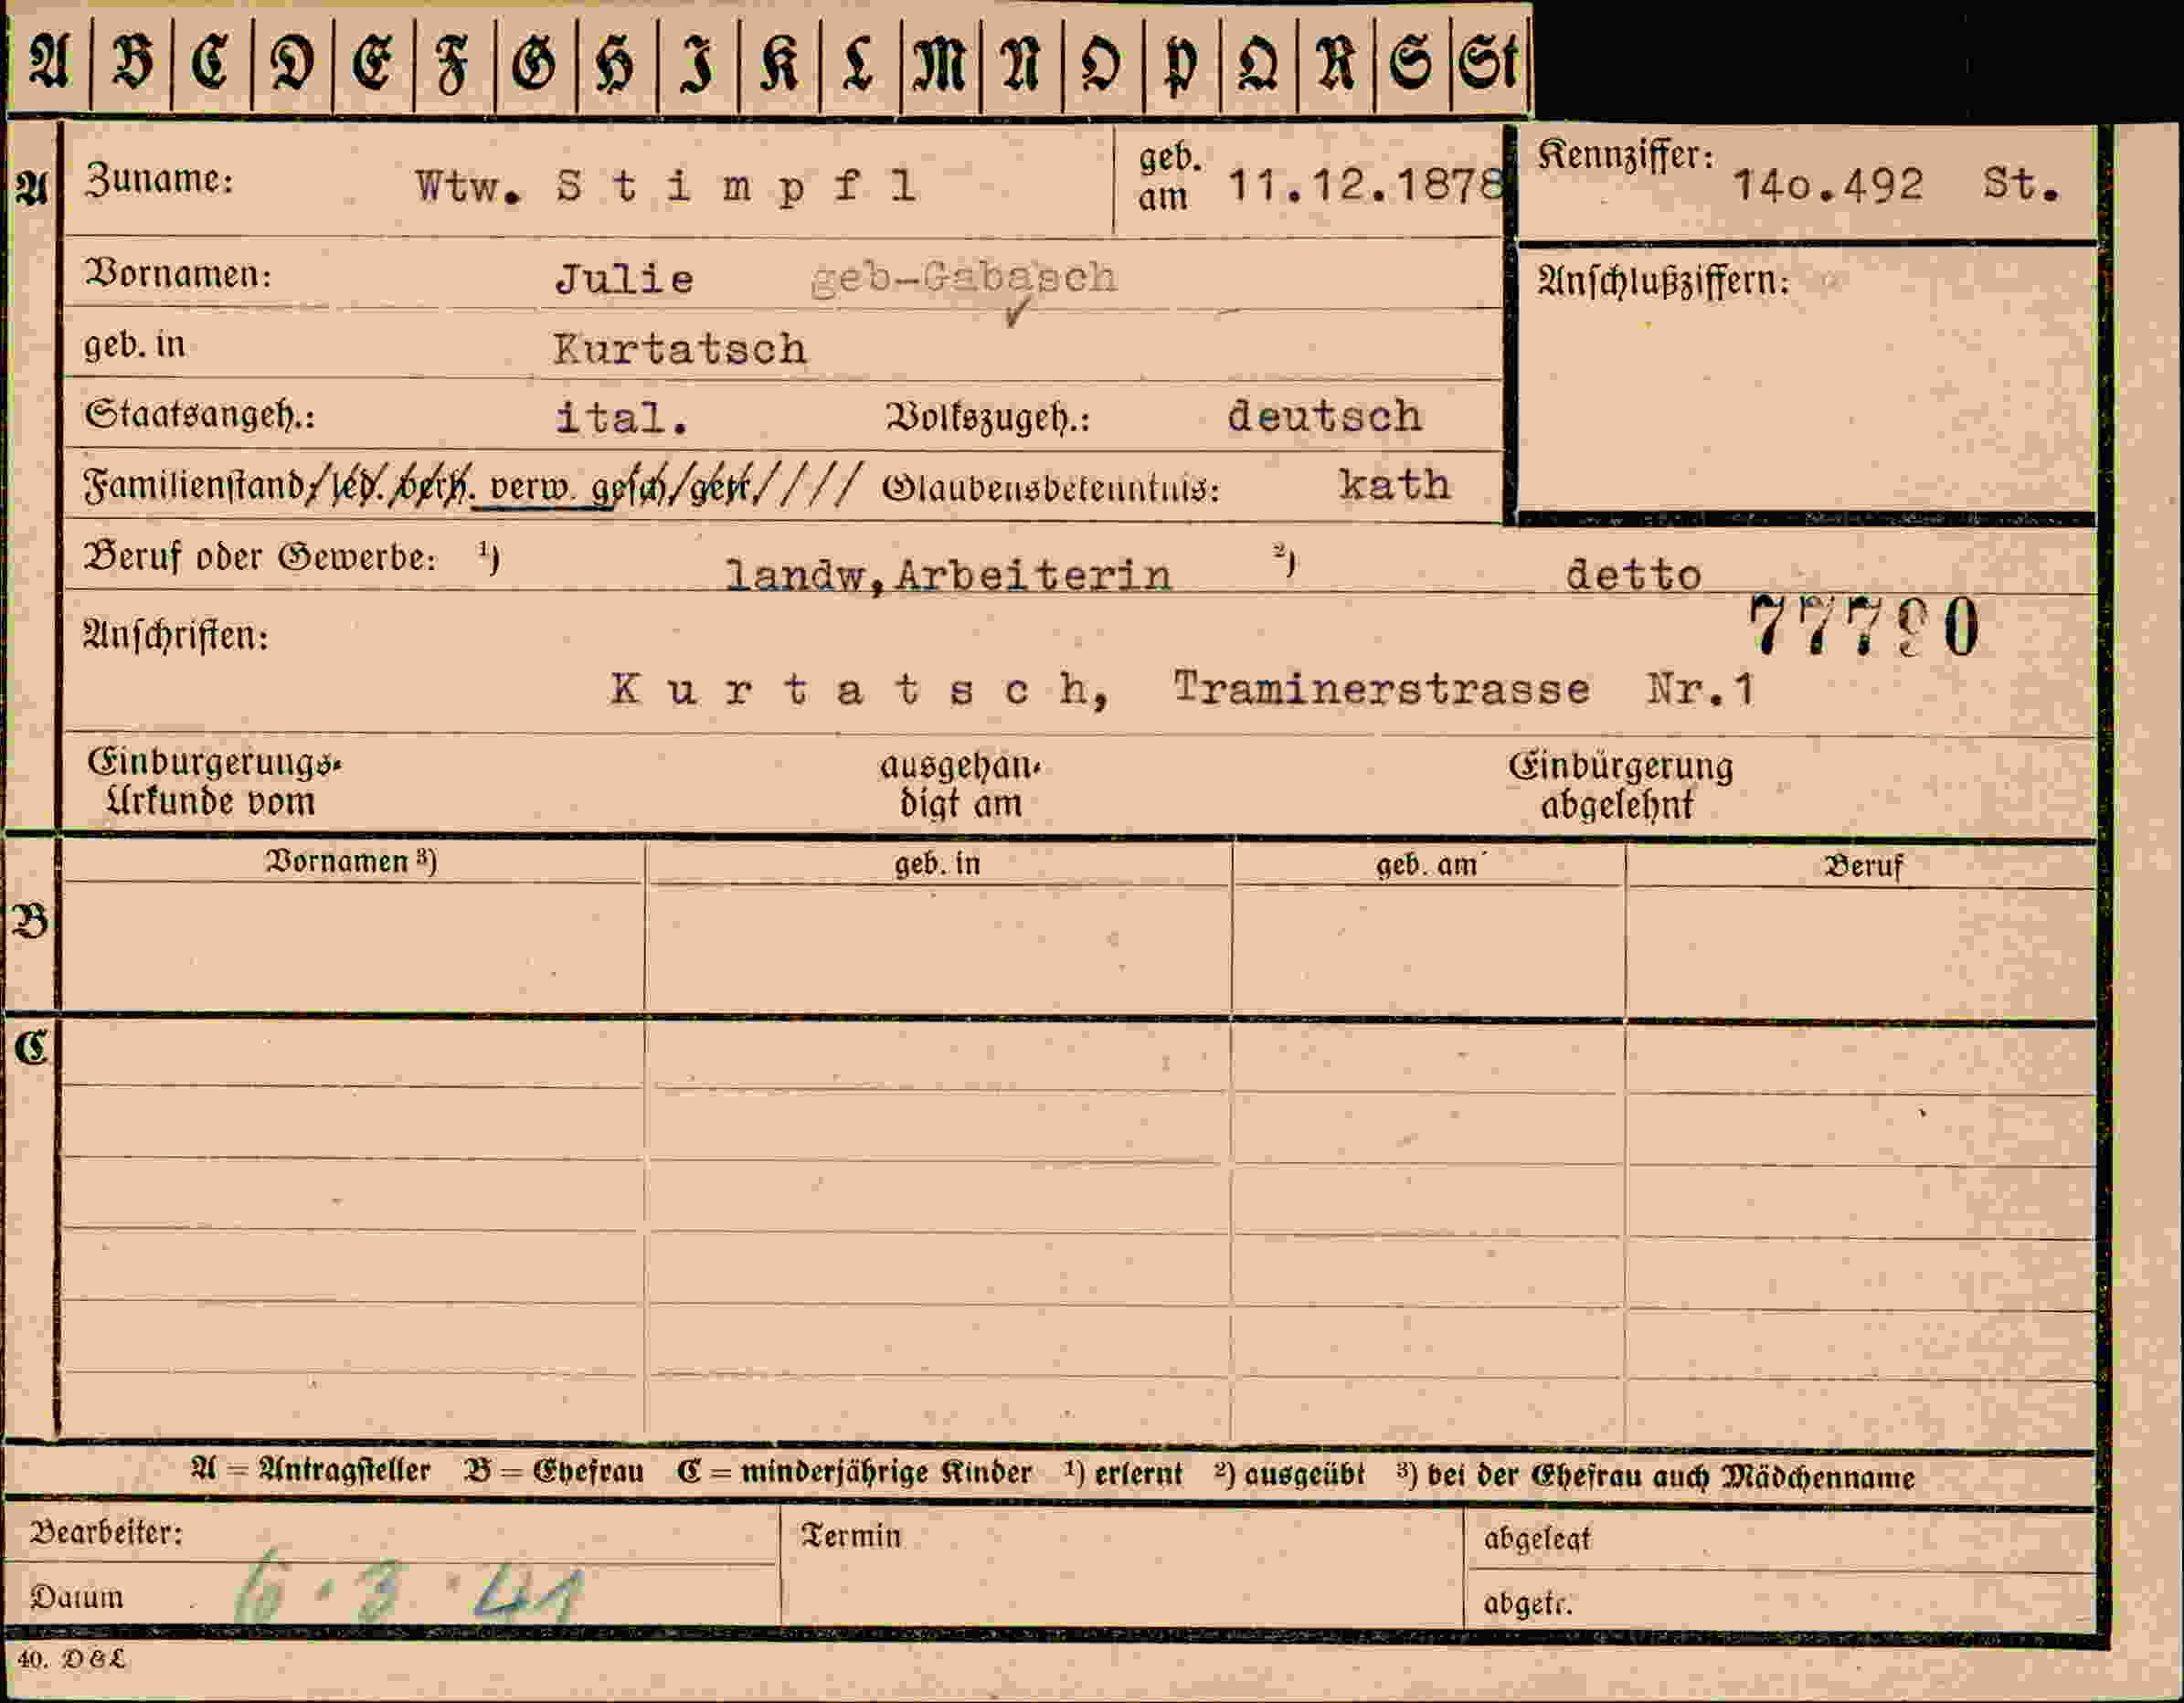 A B C D E F G H I K L M N O P Q R S St
A Zuname: Wtw. S t i m p f l geb. am 11.12.1878 Kennziffer: 14o.492 St.
Vornamen: Julie geb-Gabasch Anschlußziffern:
geb. in Kurtatsch
Staatsangeh.: ital. Volkszugeh.: deutsch
Familienstand/led. verh. verw. gesch/getr.//// Glaubensbekenntnis: kath
Beruf oder Gewerbe: ¹) landw,Arbeiterin ²) detto
Anschriften: 77790
K u r t a t s c h, Traminerstrasse Nr.1
Einbürgerungs- ausgehän- Einbürgerung
Urkunde vom digt am abgelehnt
Vornamen ³) geb. in geb. am Beruf
B
C
A = Antragsteller B = Ehefrau C = minderjährige Kinder ¹) erlernt ²) ausgeübt ³) bei der Ehefrau auch Mädchenname
Bearbeiter: Termin abgelegt
Datum 6.3.41 abgetr.
40. D&L